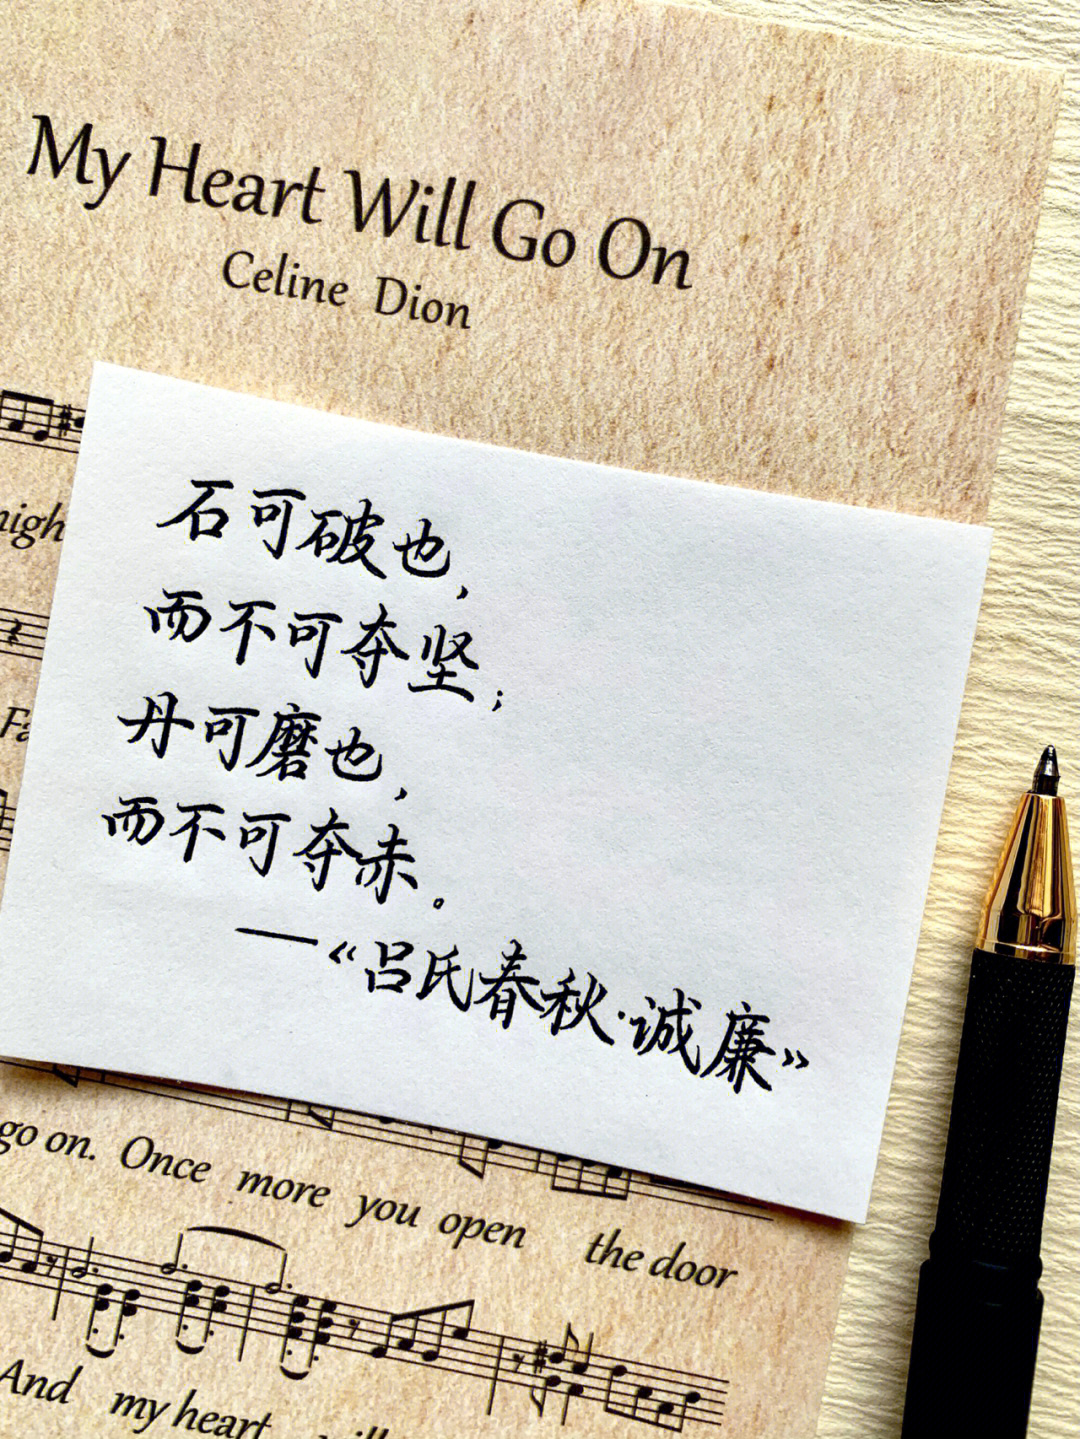 My Heart Will Go On
Celine Dion
石可破也，
而不可夺坚；
丹可磨也，
而不可夺赤。
—《吕氏春秋·诚廉》
go on. Once more you open the door
And my heart